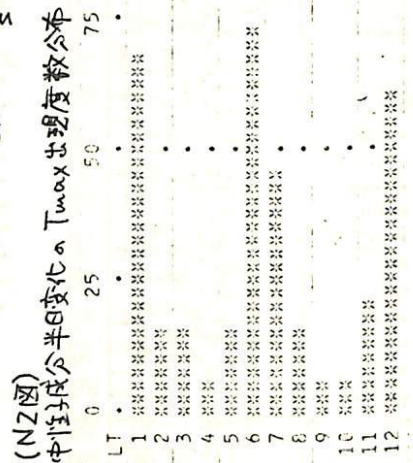 (NZ図)
中性子成分半日変化の Tmax 出現度数分布
0 25 50 75
LT
1
2
3
4
5
6
7
8
9
10
11
12